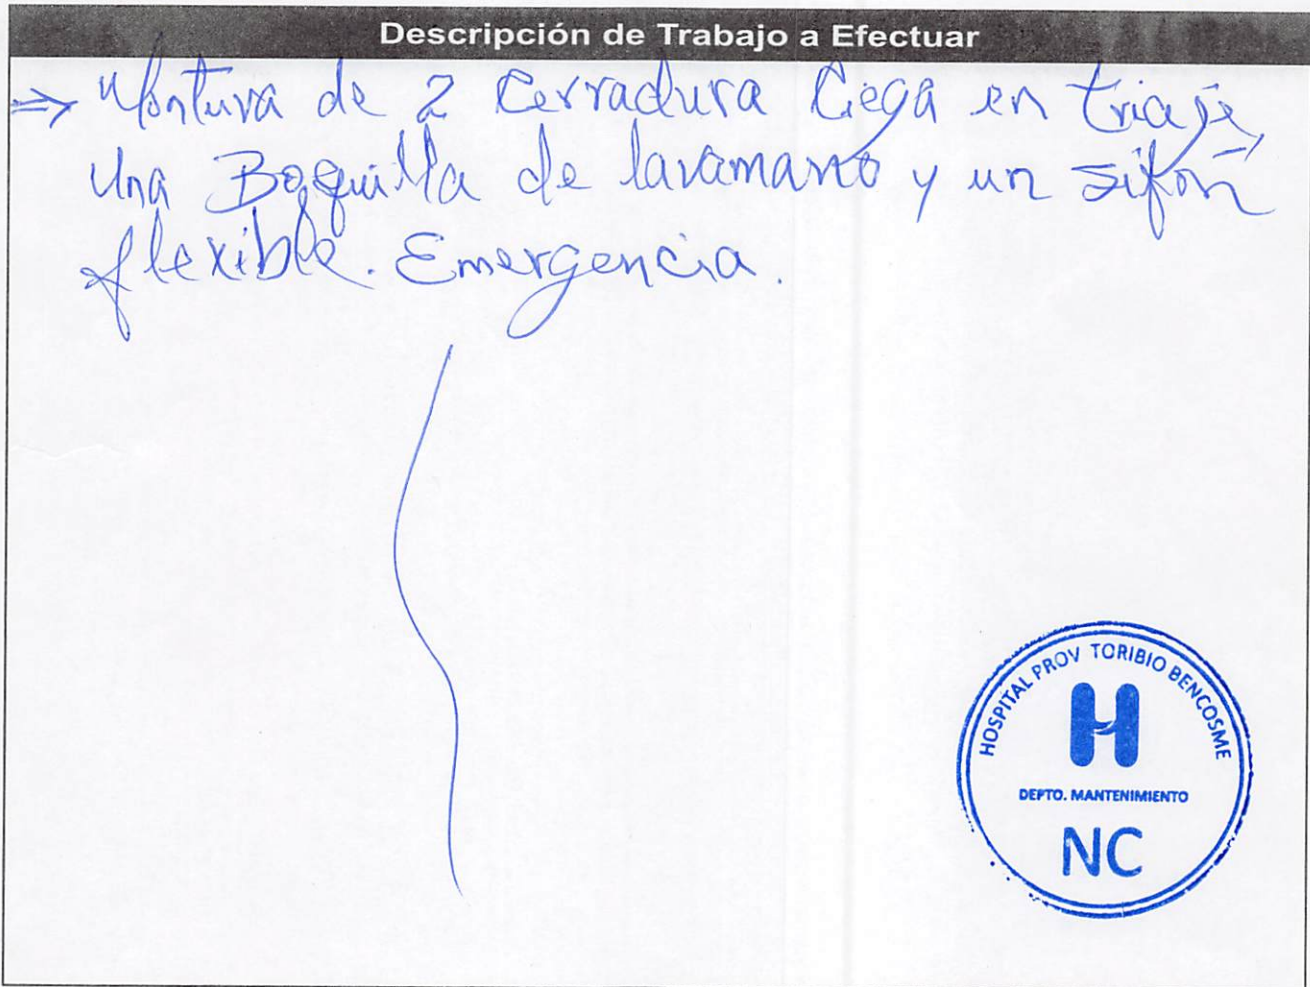 Descripción de Trabajo a Efectuar
⇒ Montura de 2 Cerradura Ciega en triaje,
Una Boquilla de lavamano y un sifón
flexible. Emergencia.
HOSPITAL PROV TORIBIO BENCOSME
H
DEPTO. MANTENIMIENTO
NC